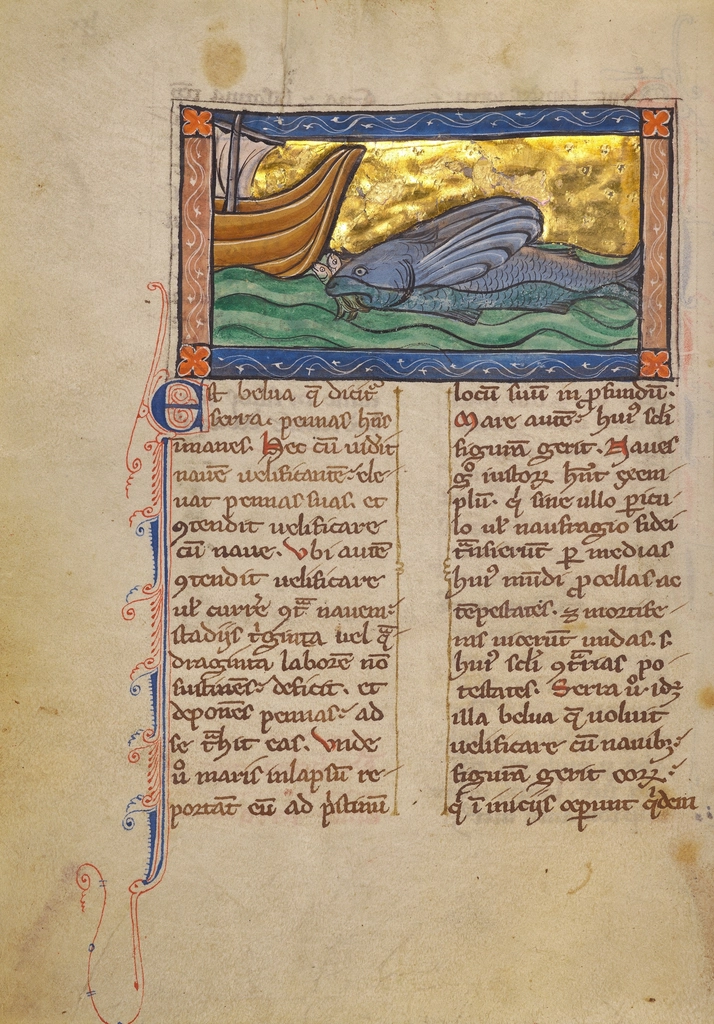 Est belua q̄ dicit᷑
serra. pennas hn̄s
inmanes. Hec cū uidit
nauē uelificantē. ele-
uat pennas suas. et
ꝯtendit uelificare
cū naue. Vbi autē
ꝯtendit uelificare
ul᷑ curre᷑ ꝯt᷑ nauem.
stadijs t᷑ginta uel q̄-
draginta laborē nō
sustinēs. deficit. et
deponēs pennas. ad
se t᷑hit eas. Vnde
u᷑o maris inlapsū re-
portāt eū ad p᷑stinū
locū suū in ꝓfundū.
Mare autē. huiꝰ scl̄i
figurā gerit. Naues
g᷑ iustoꝝ hn̄t exem-
plū. q᷑ sine ullo ꝑicu-
lo ul᷑ naufragio fidei
t᷑nsierūt ꝑ medias
huiꝰ mūdi ꝓcellas ac
tēpestates. ⁊ mortife-
ras uicerūt undas. s.
huiꝰ scl̄i ꝯt᷑rias po-
testates. Serra u᷑o. idꝫ
illa belua q̄ uoluit
uelificare cū nauibꝫ.
figurā gerit eoꝝ.
q᷑ ī inicijs ceꝑunt q᷑dem